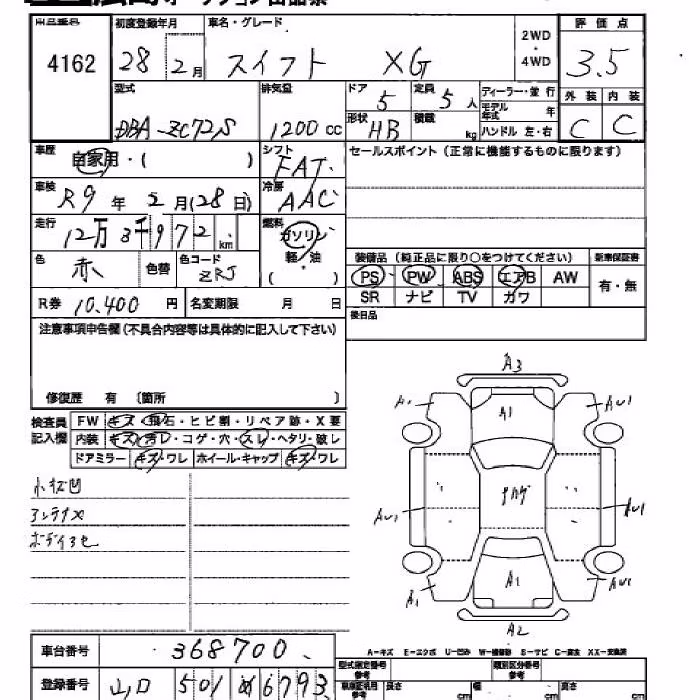 4162
初度登録年月 車名・グレード 2WD・4WD 評価点
28 2月 スイフト XG 3.5
型式 排気量 ドア 定員 ディーラー・並行 外装 内装
DBA-ZC72S 1200cc 5 5人 モデル年式 年 C C
形状 HB 積載 kg ハンドル 左・右
車歴 自家用・( ) シフト FAT セールスポイント(正常に機能するものに限ります)
車検 R9年2月(28日) 冷房 AAC
走行 12万3千972km 燃料 ガソリン 軽・油 ( )
色 赤 色替 色コード ZRJ
装備品(純正品に限り○をつけてください) 新車保証書
PS PW ABS エアB AW 有・無
SR ナビ TV カワ
R券 10,400円 名変期限 月 日 後日品
注意事項申告欄(不具合内容等は具体的に記入して下さい)
修復歴 有 〔箇所 〕
検査員記入欄 FW キズ・飛石・ヒビ割・リペア跡・X要
内装 キズ・汚レ・コゲ・穴・スレ・ヘタリ・破レ
ドアミラー キズ・ワレ ホイール・キャップ キズ・ワレ
小キズ凹
アンテナX
A3
A1 A1 AU1
AU1 AU1
A1 A1 AU1
A2
A-キズ E-エクボ U-凹み W-補修跡 S-サビ C-腐食 XX-交換済
車台番号 368700
型式指定番号 参考 類別区分番号 参考
登録番号 山口 501 め 6793
車庫証明用 参考 長さ cm 幅 cm 高さ cm